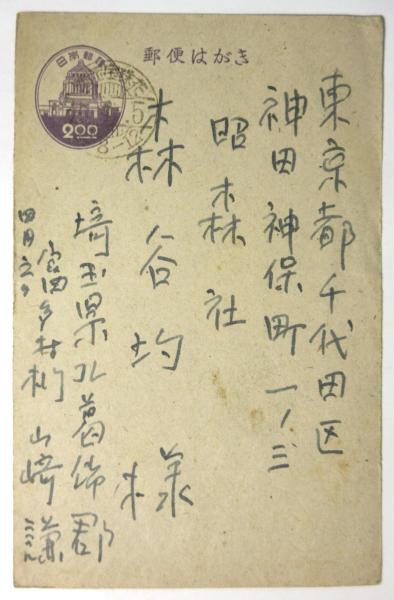 郵便はがき
日本郵便
2.00
東京都千代田区
神田神保町一ノ三
昭森社
森谷均様
埼玉県北葛飾郡
富多村 山崎謙
四月六日